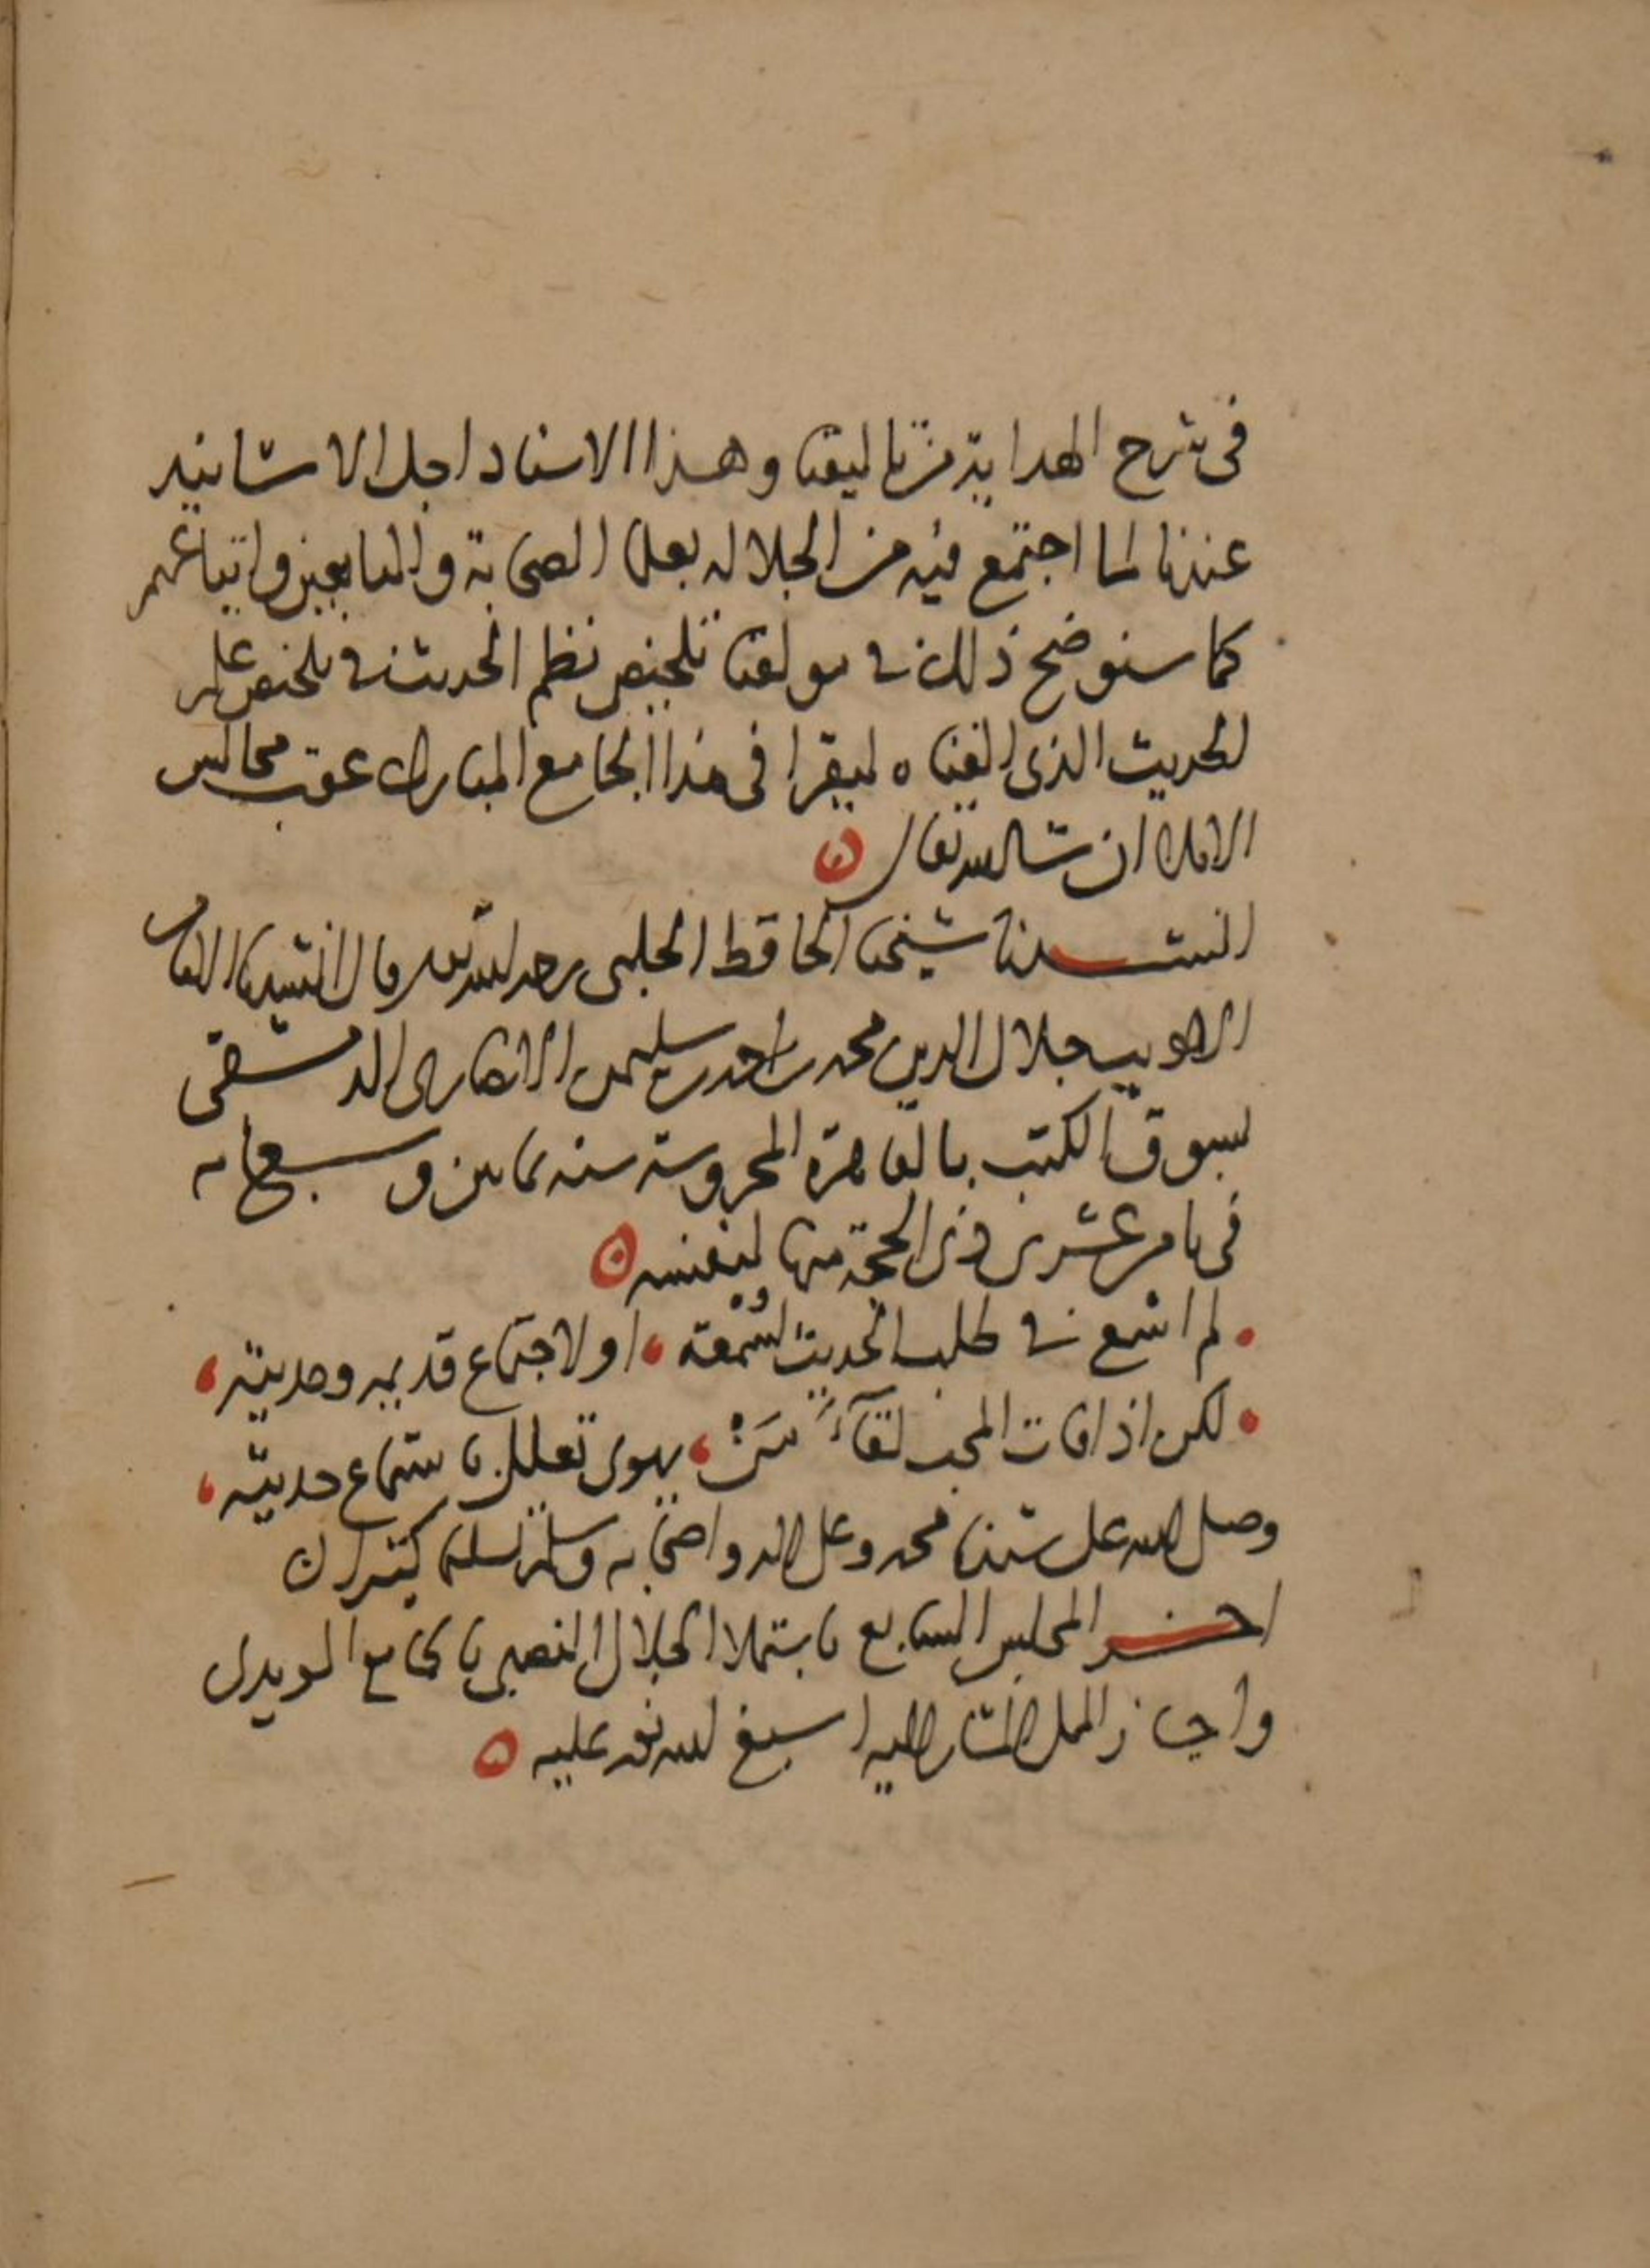 في شرح الهداية من تاليفنا وهذا الاسناد اجل الاسانيد
عندنا لما اجتمع فيه من الجلالة بعلما الصحابة والتابعين واتباعهم
كما سنوضح ذلك في مولفنا تلخيص نظم الحديث في تلخيص علم
الحديث الذي الفناه ليقرا في هذا الجامع المبارك عقب مجالس
الاملا ان شا الله تعالى
انشدنا شيخنا الحافظ الحلبي رحمه الله تعالى قال انشدنا الامام
الاديب جلال الدين محمد بن احمد بن سليمن الانصاري الدمشقي
بسوق الكتب بالقاهرة المحروسة سنة ثمانين وسبعمائة
في ثامن عشرى ذي الحجة منها لنفسه
لم اسع في طلب الحديث لسمعة او لاجتماع قديمه وحديثه
لكن اذا فات المحب لقاء من يهوى تعلل باستماع حديثه
وصلى الله على سيدنا محمد وعلى اله واصحابه وسلم تسليما كثيرا
اخر المجلس السابع باستملا الجلال النصيبي بالجامع المويدي
واجاز المملي المشار اليه اسبغ الله نعمه عليه